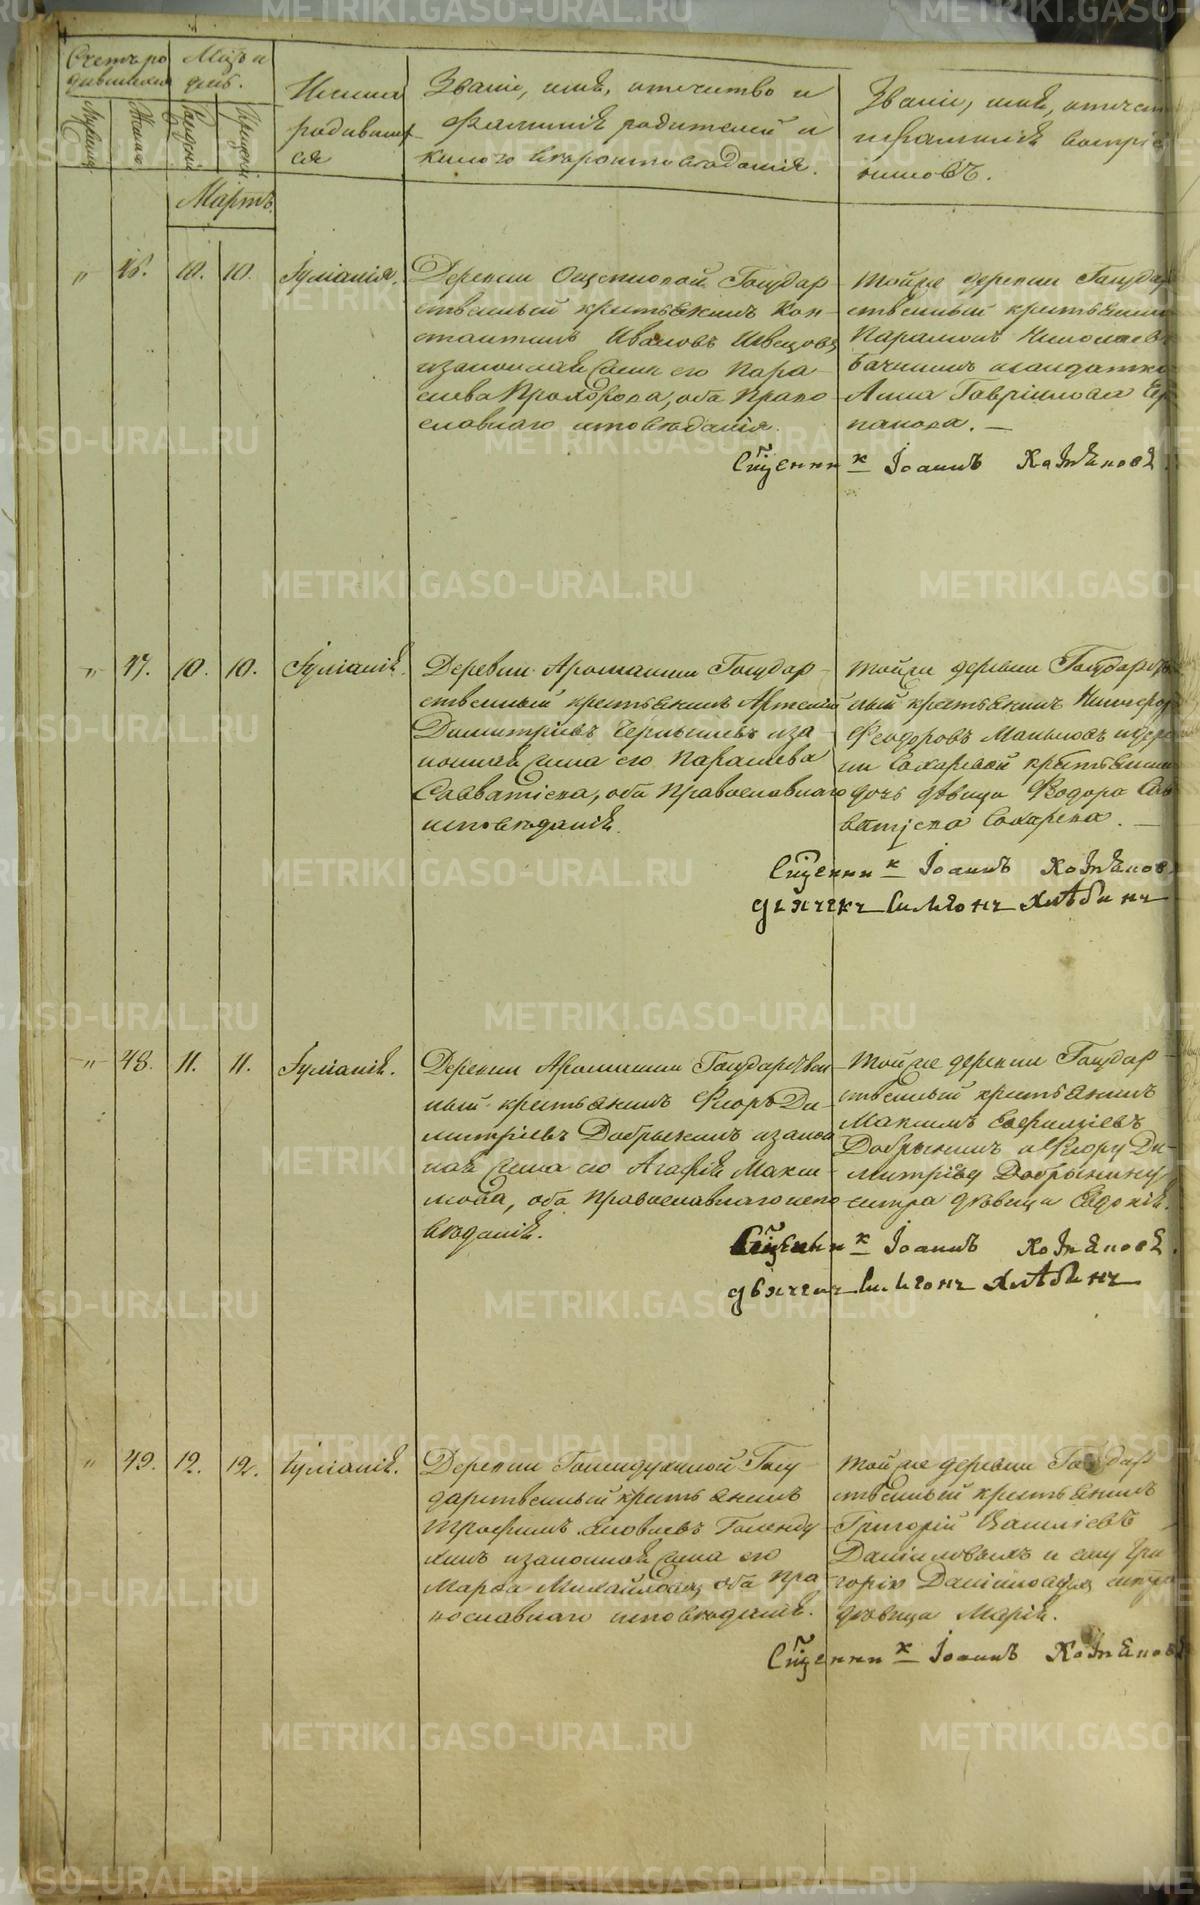 Счетъ ро
дившихся
Мѣсяцъ и
день.
Имена
родивших
ся
Званіе, имя, отчество и
фамилія родителей и
какого вѣроисповѣданія.
Званіе, имя, отчест
и фамилія воспріе
никовъ.
Женска
Рожденія
Крещенія
Мартъ.
" 46. 10. 10. Іуліанія.
Деревни Ощепковой Государ
ственный крестьянинъ Кон
стантинъ Ивановъ Швецовъ
и законная жена его Пара
скева Прохорова, оба право
славнаго исповѣданія.
Той же деревни Государ
ственный крестьянинъ
Парамонъ Николаевъ
Анна Гавріилова
панова.
Священникъ Іоаннъ Хохряковъ
" 47. 10. 10. Іуліанія.
Деревни Ярославки Государ
ственный крестьянинъ Артемій
Димитріевъ Чернышевъ и за
конная жена его Параскева
Савватіева, оба православнаго
исповѣданія.
Той же деревни Государстве
ный крестьянинъ Никифоръ
Феодоровъ Маньковъ и дерев
ни Сахаревой крестьянина
дочь дѣвица Феодора Сав
ватіева Сахарева.
Священникъ Іоаннъ
дьячекъ Симеонъ Хлѣбинъ
" 48. 11. 11. Іуліанія.
Деревни Государствен
ный крестьянинъ Флоръ Ди
митріевъ Добрынинъ и закон
ная жена его Агафія Макси
мова, оба православнаго испо
вѣданія.
Той же деревни Государ
ственный крестьянинъ
Максимъ Евфиміевъ
Добрынинъ и Флору Ди
митріеву Добрынину
сестра дѣвица Евдокія.
Священникъ Іоаннъ
дьячекъ Симеонъ Хлѣбинъ
" 49. 12. 12. Іуліанія.
Деревни Голендухиной Госу
дарственный крестьянинъ
Трофимъ Яковлевъ Голенду
хинъ и законная жена его
Марѳа Михайлова, оба пра
вославнаго исповѣданія.
Той же деревни Государ
ственный крестьянинъ
Григорій Василіевъ
Даниловыхъ и ему Гри
горію Даниловыхъ сестра
дѣвица Марія.
Священникъ Іоаннъ
METRIKI.GASO-URAL.RU